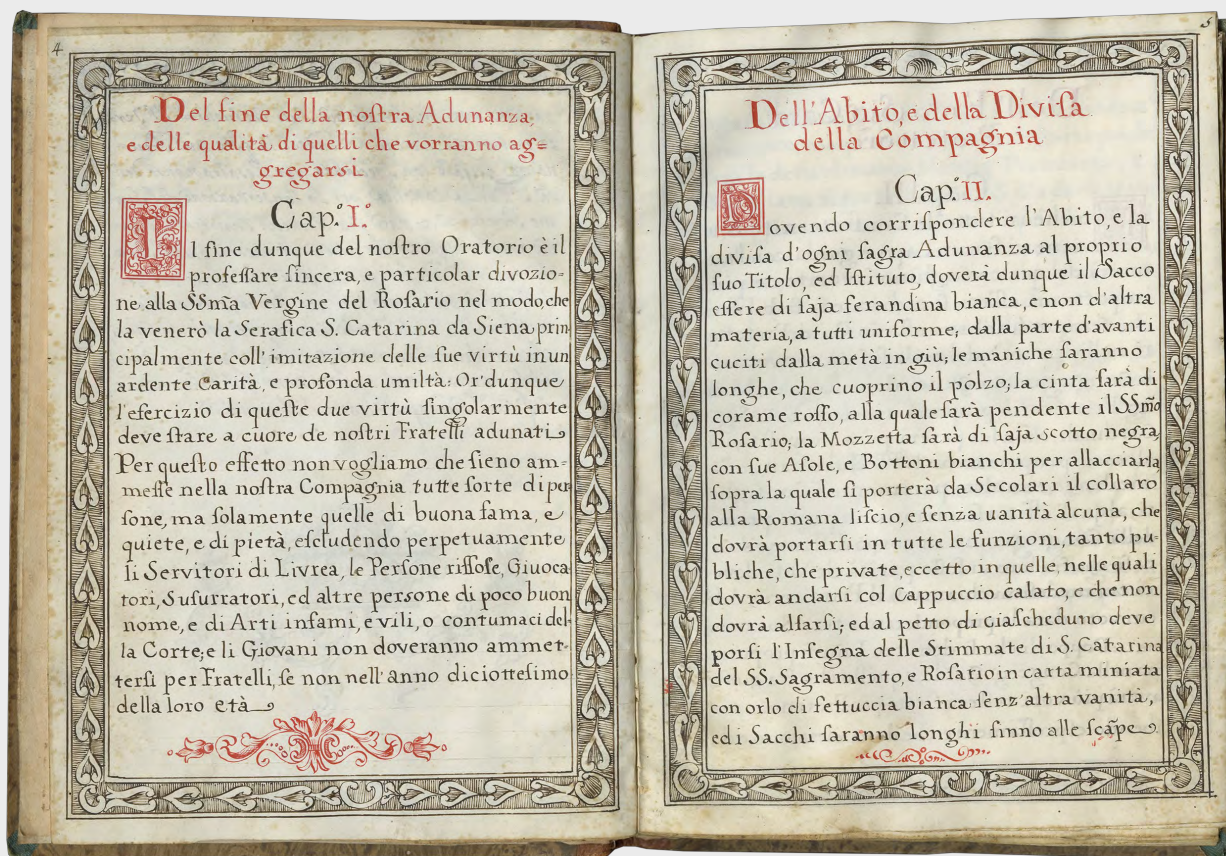 4
Del fine della noſtra Adunanza,
e delle qualità di quelli che vorranno ag=
gregarsi
Cap.º I.º
Il fine dunque del noſtro Oratorio è il
profeſſare ſincera, e particolar divozio=
ne alla SSm̃a Vergine del Roſario nel modo, che
la venerò la Serafica S. Catarina da Siena prin
cipalmente coll' imitazione delle ſue virtù in un
ardente Carità, e profonda umiltà: Or'dunque
l'eſercizio di queſte due virtù ſingolarmente
deve ſtare a cuore de noſtri Fratelli adunati
Per queſto effetto non vogliamo che ſieno am=
meſſe nella noſtra Compagnia tutte ſorte di per
ſone, ma ſolamente quelle di buona fama, e
quiete, e di pietà, eſcludendo perpetuamente
li Servitori di Livrea, le Perſone riſſoſe, Giuoca
tori, Suſurratori, ed altre persone di poco buon
nome, e di Arti infami, e vili, o contumaci del=
la Corte; e li Giovani non doveranno ammet=
terſi per Fratelli, ſe non nell' anno diciotteſimo
della loro età
5
Dell'Abito, e della Diviſa
della Compagnia
Cap.º II.
Dovendo corriſpondere l'Abito, e la
diviſa d'ogni ſagra Adunanza al proprio
ſuo Titolo, ed Iſtituto, doverà dunque il Sacco
eſſere di ſaja ferandina bianca, e non d'altra
materia, a tutti uniforme; dalla parte d'avanti
cuciti dalla metà in giù; le maniche ſaranno
longhe, che cuoprino il polzo; la cinta ſarà di
corame roſſo, alla quale ſarà pendente il SSm̃o
Roſario; la Mozzetta ſarà di ſaja scotto negra,
con ſue Aſole, e Bottoni bianchi per allacciarla
ſopra la quale ſi porterà da Secolari il collaro
alla Romana liſcio, e ſenza uanità alcuna, che
dovrà portarſi in tutte le funzioni, tanto pu=
bliche, che private, eccetto in quelle, nelle quali
dovrà andarſi col Cappuccio calato, e che non
dovrà alſarſi; ed al petto di ciaſcheduno deve
porſi l'Inſegna delle Stimmate di S. Catarina
del SS. Sagramento, e Roſario in carta miniata
con orlo di fettuccia bianca ſenz'altra vanità,
ed i Sacchi ſaranno longhi ſinno alle ſcãpe